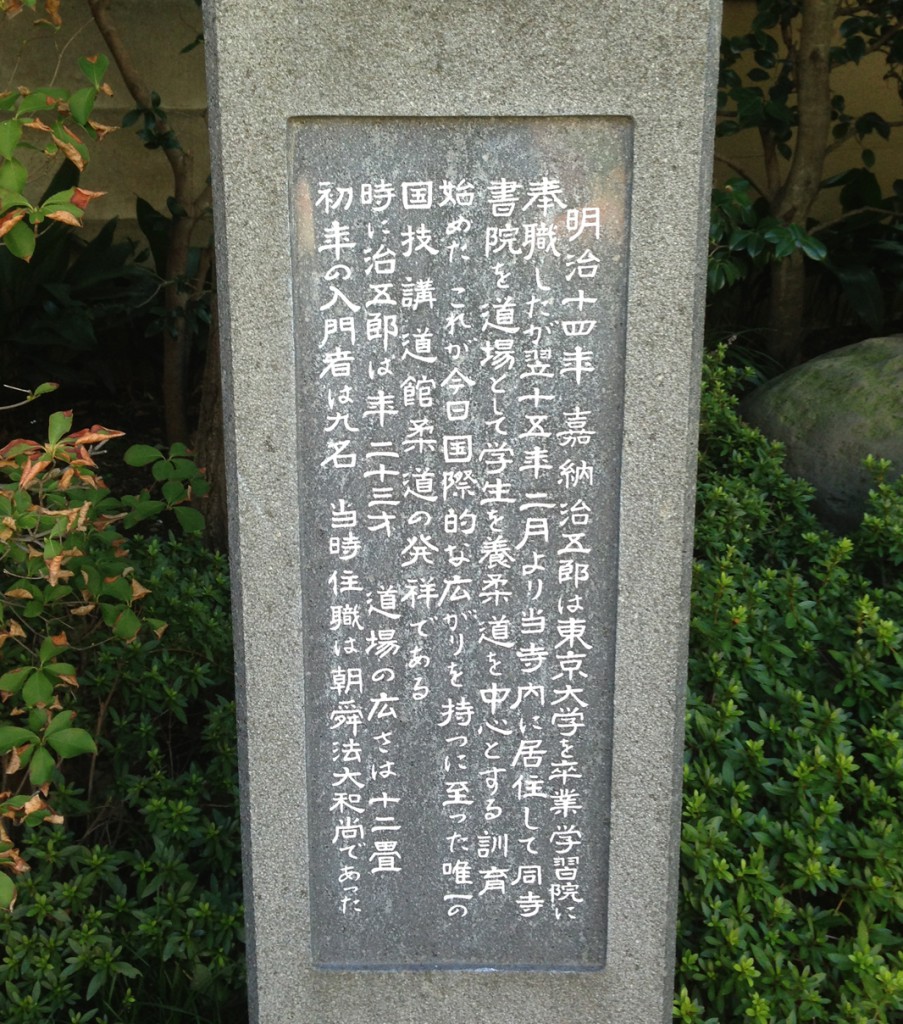 明治十四年 嘉納治五郎は東京大学を卒業学習院に
奉職しだが翌十五年二月より当寺内に居住して同寺
書院を道場として学生を養柔道を中心とする訓育
始めた これが今日国際的な広がりを持つに至った唯一の
国技 講道館柔道の発祥である
時に治五郎は年二十三才 道場の広さは十二畳
初年の入門者は九名 当時住職は朝舜法大和尚であった